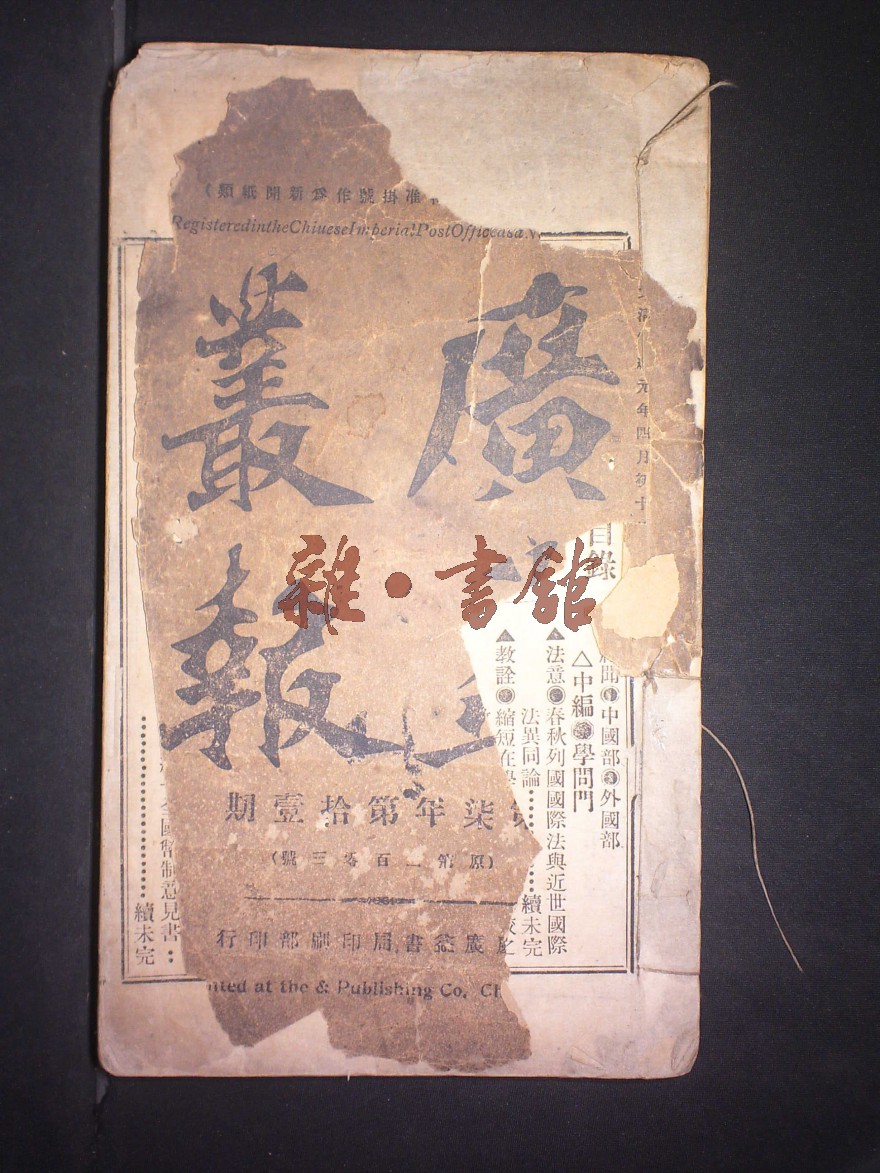 准掛號作爲新聞紙類）
RegisteredintheChiueseImperia!PostOfficeasa
元年四月第十
廣
叢報
第柒年第拾壹期
（原第二百零三號）
廣益書局印刷部印行
nted at the & Publishing Co, Ch
雜·書舘
目錄
聞●中國部●外國部
△中編●學問門
▲法意●春秋列國國際法與近世國際
法異同論…………續未完
▲教詮●縮短在學
國幣制意見書：
…………續未完